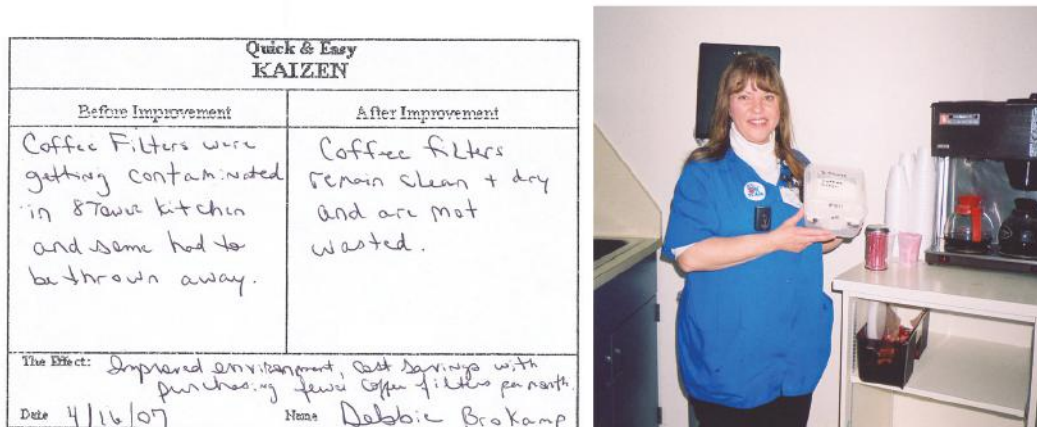 Quick & Easy
KAIZEN
Before Improvement
Coffee Filters were
getting contaminated
in 8 Tower kitchen
and some had to
be thrown away.
After Improvement
Coffee filters
remain clean + dry
and are not
wasted.
The Effect: Improved environment, cost savings with
purchasing fewer coffee filters per month.
Date 4/16/07 Name Debbie Brokamp